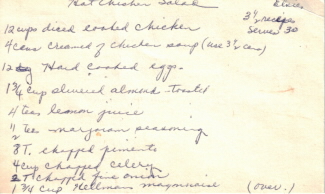 Hot Chicken Salad
3½ recipes
Serves 30
12 cups diced cooked chicken
4 cans creamed of chicken soup (use 3½ cans)
12 Hard cooked eggs.
1¾ cup slivered almond toasted
4 tbs lemon juice
½ tes marjoram seasoning
8 T. chopped pimento
4 cup chopped celery
2 T chopped fine onion
1¾ cup Hellmans mayonnaise (over.)